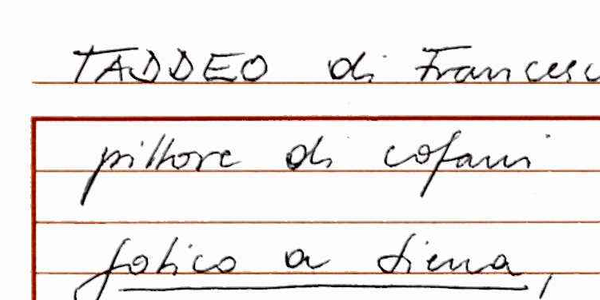 TADDEO di Francesc
pittore di cofani
fatico a Siena,